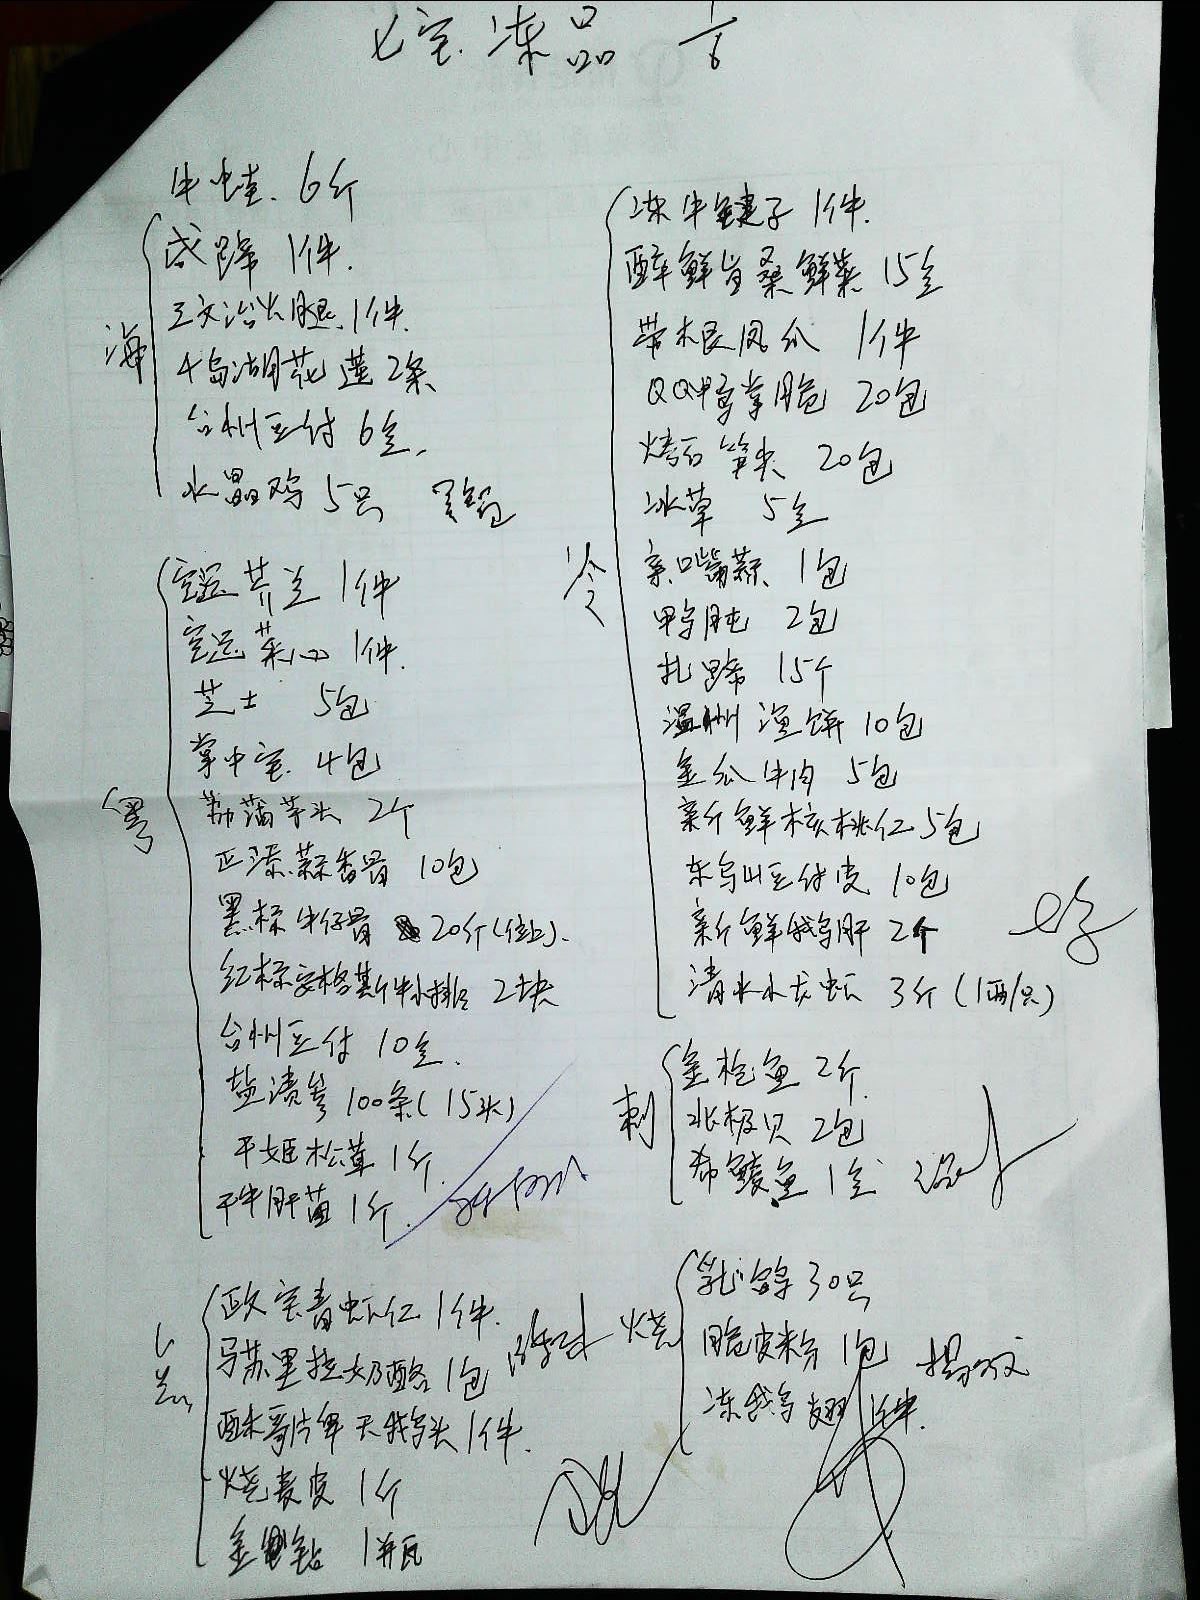 七宝冻品 1/6
牛蛙 6斤
海
咸蹄 1件.
三文治火腿 1件.
千岛湖花莲 2条
台州豆付 6仝.
水晶鸡 5只
粤
空运芥兰 1件
空运菜心 1件.
芝士 5包
掌中宝 4包
荔蒲芋头 2个
正添蒜香骨 10包
黑标牛仔骨 20斤(位上).
红标安格斯牛小排 2块
台州豆付 10仝.
盐渍参 100条(15头)
干姬松茸 1斤
干牛肝菌 1斤.
点
欧宝青虾仁 1件.
马苏里拉奶酪 1包
天鹅头 1件.
烧麦皮 1斤
金钻 1瓶
冷
冻牛腱子 1件.
鲜 15仝
带根凤爪 1件
QQ鸭掌脆 20包
烤石笋尖 20包
冰草 5仝
亲嘴蒜 1包
鸭肫 2包
扎蹄 15个
温州渔饼 10包
金瓜牛肉 5包
新鲜核桃仁 5包
东乌山豆付皮 10包
新鲜鹅肝 2个
清水小龙虾 3斤(1两/只)
刺
金枪鱼 2斤.
北极贝 2包
希鲮鱼 1仝
烧
乳鸽 30只
脆皮粉 1包
冻鹅翅 1件.